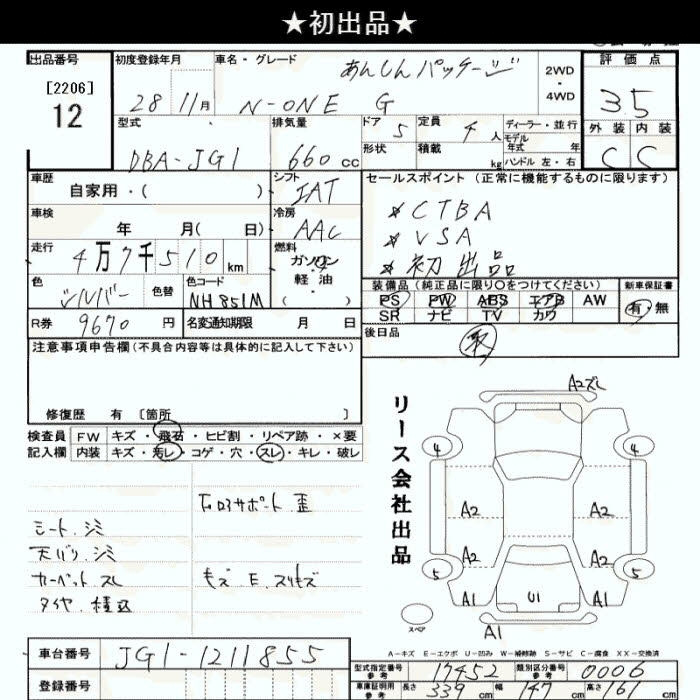 ★初出品★
出品番号
[2206]
12
初度登録年月
28 11月
車名・グレード
あんしんパッケージ
N-ONE G
2WD
・
4WD
評価点
3.5
外装 内装
C C
型式
DBA-JG1
排気量
660 cc
ドア 5
形状
定員 4 人
積載 kg
ディーラー・並行
モデル
年式 年
ハンドル 左・右
車歴
自家用・( )
シフト
IAT
セールスポイント (正常に機能するものに限ります)
*CTBA
*VSA
*初出品
車検
年 月( 日)
冷房
AAC
走行
4万7千510 km
燃料
ガソリン
軽油
( )
色
シルバー
色替
色コード
NH851M
装備品 (純正品に限り〇をつけてください)
PS PW ABS エアB AW
SR ナビ TV カワ
新車保証書
有・無
R券 9670 円
名変通知期限 月 日
後日品
注意事項申告欄 (不具合内容等は具体的に記入して下さい)
修復歴 有 [箇所 ]
検査員
記入欄
FW キズ・飛石・ヒビ割・リペア跡・×要
内装 キズ・汚レ・コゲ・穴・スレ・キレ・破レ
シート.シミ
天バリ.シミ
カーペット スレ
タイヤ.積込
リース会社出品
A2ズレ
4 4
A2 A2
A2 A2
5 5
A1 U1 A1
スペア
A1
A-キズ E-エクボ U-凹み W-補修跡 S-サビ C-腐食 XX-交換済
車台番号 JG1-1211855
登録番号
型式指定番号
参考
17452
類別区分番号
参考
0006
車庫証明用
参考
長さ 339 cm
幅 147 cm
高さ 161 cm